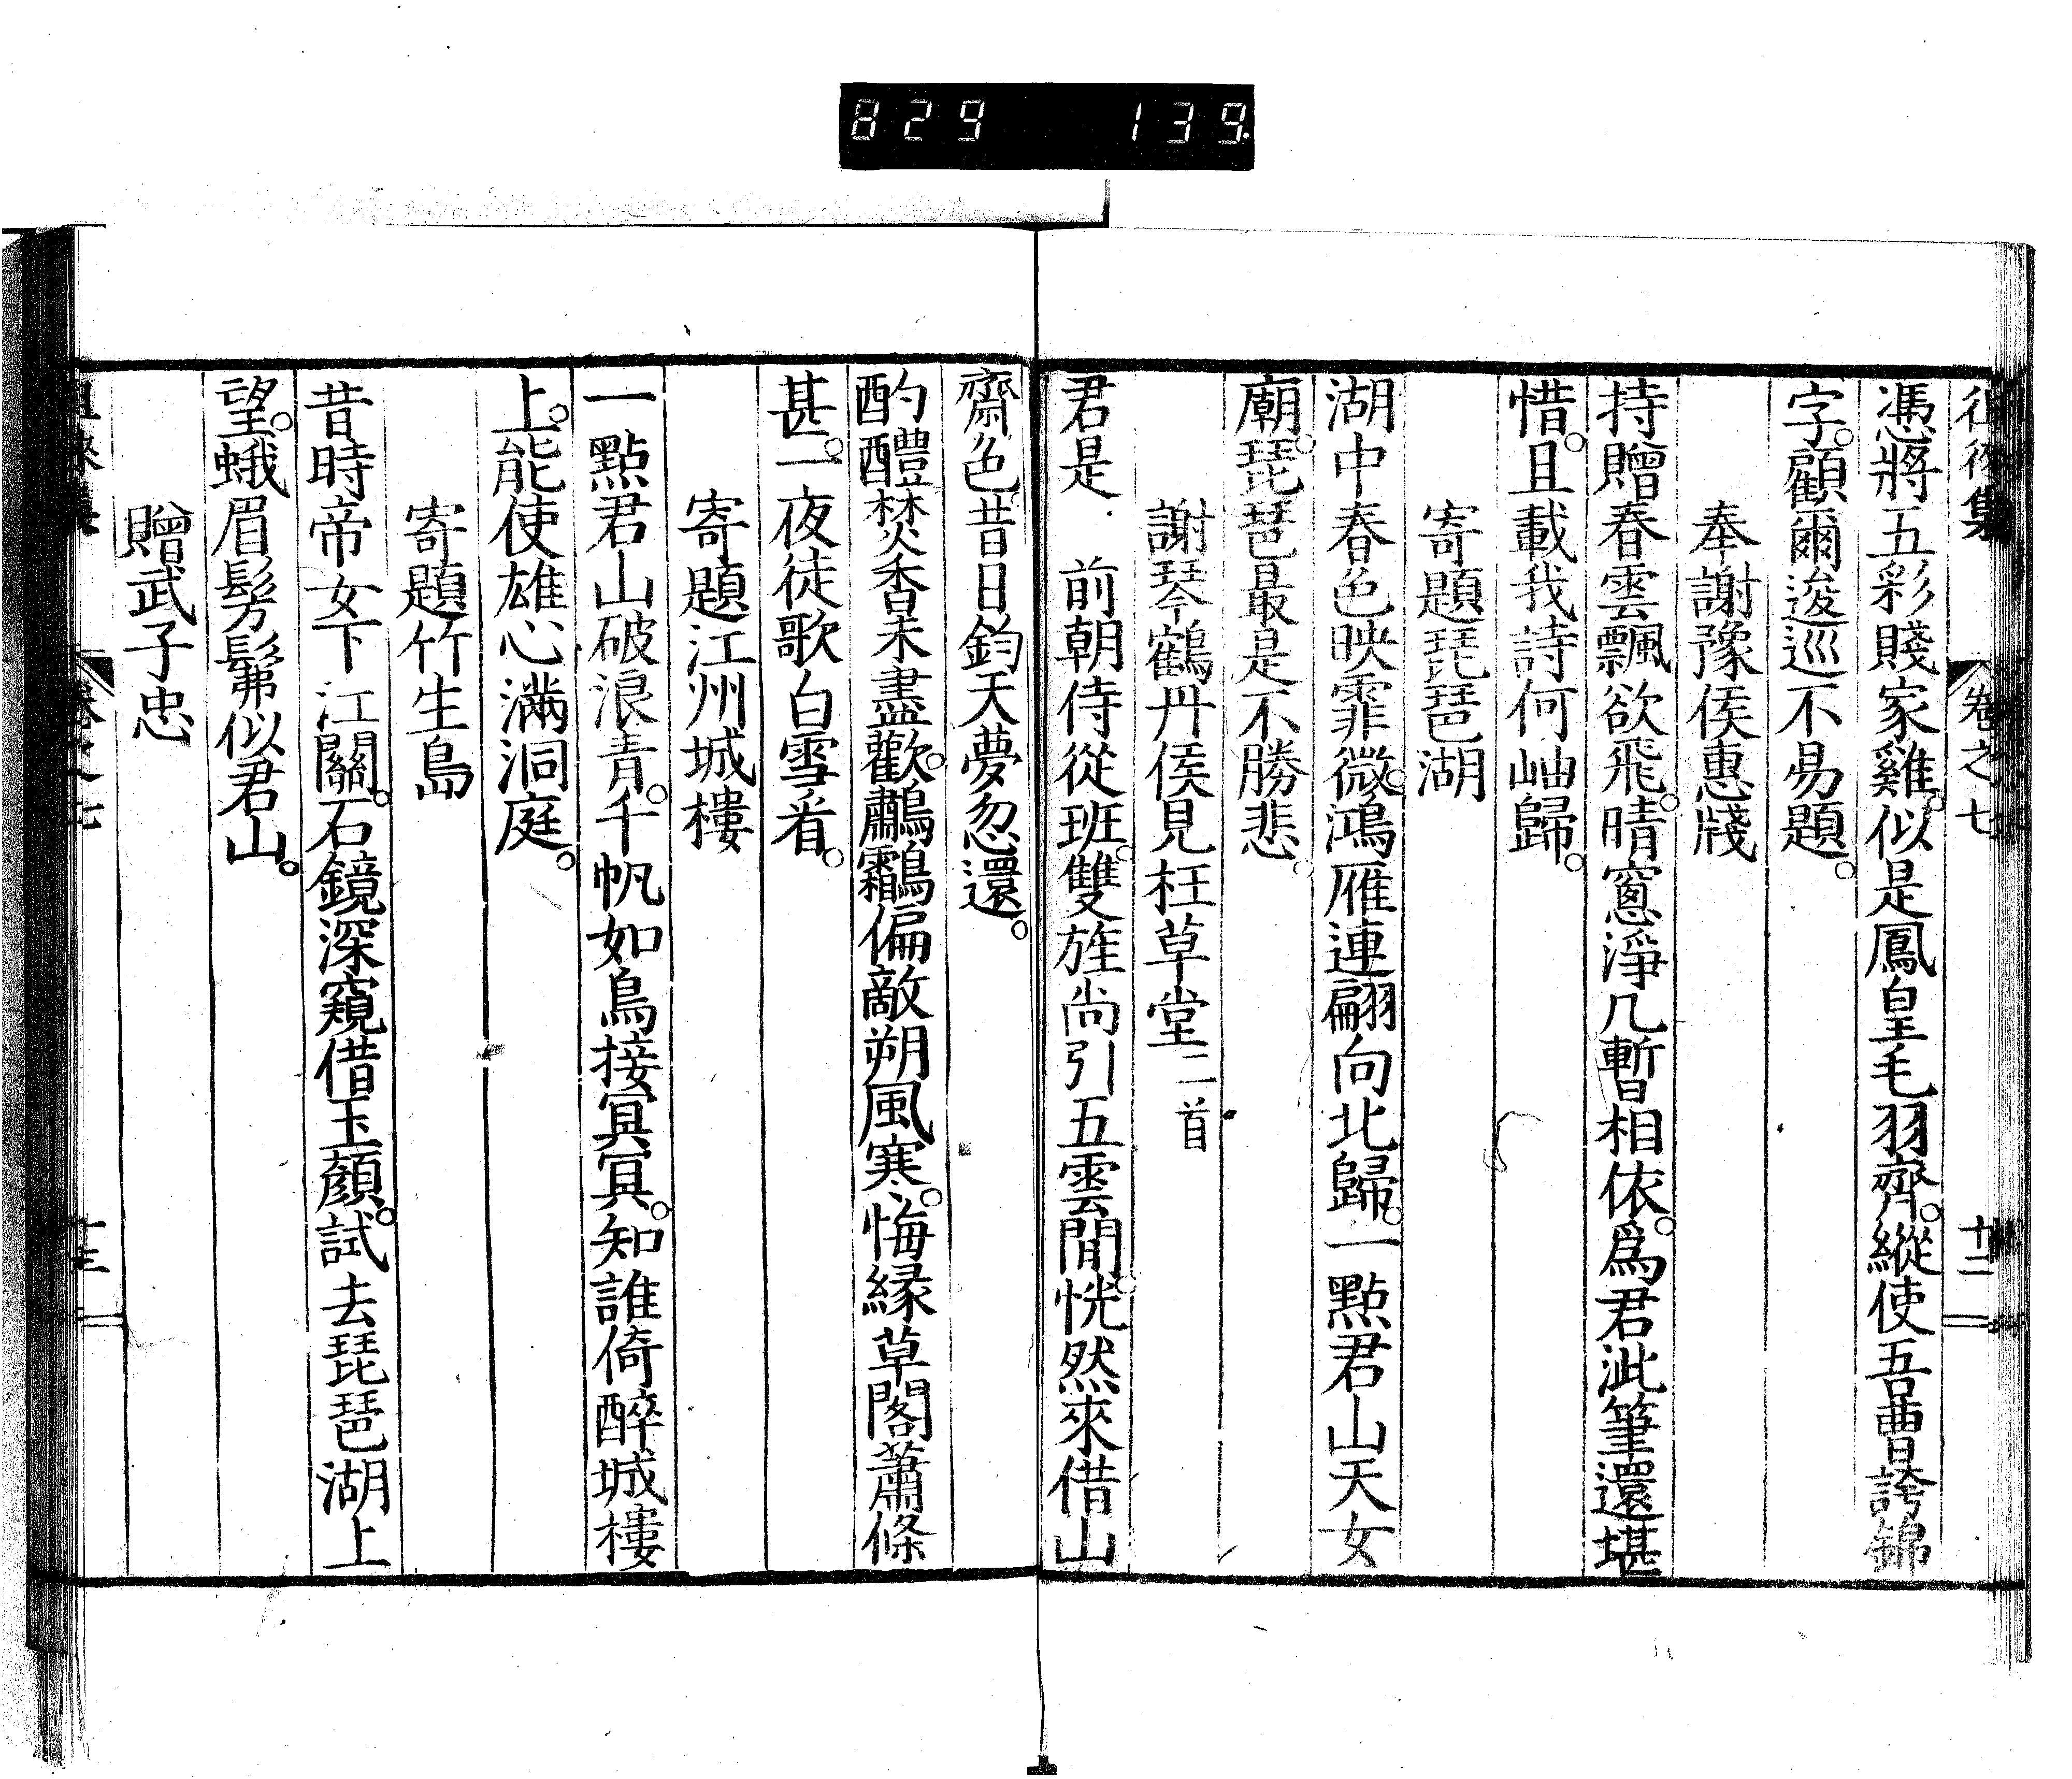 829 139.
卷之七
十二
憑將五彩賤家雞。似是鳳皇毛羽齊。縱使吾曹誇錦
字。顧爾逡巡不易題。
奉謝豫侯惠牋
持贈春雲飄欲飛。晴窻淨几暫相依。爲君泚筆還堪
惜。且載我詩何岫歸。
寄題琵琶湖
湖中春色映霏微。鴻雁連翩向北歸。一點君山天女
廟。琵琶最是不勝悲。
謝琴鶴丹侯見枉草堂二首
君是 前朝侍從班。雙旌尚引五雲閒。恍然來借山
齋色。昔日鈞天夢忽還。
酌醴焚香未盡歡。鷫鸘偏敵朔風寒。悔縁草閣蕭條
甚。一夜徒歌白雪看。
寄題江州城樓
一點君山破浪青。千帆如鳥接冥冥。知誰倚醉城樓
上。能使雄心滿洞庭。
寄題竹生島
昔時帝女下江關。石鏡深窺借玉顏。試去琵琶湖上
望。蛾眉髣髴似君山。
贈武子忠